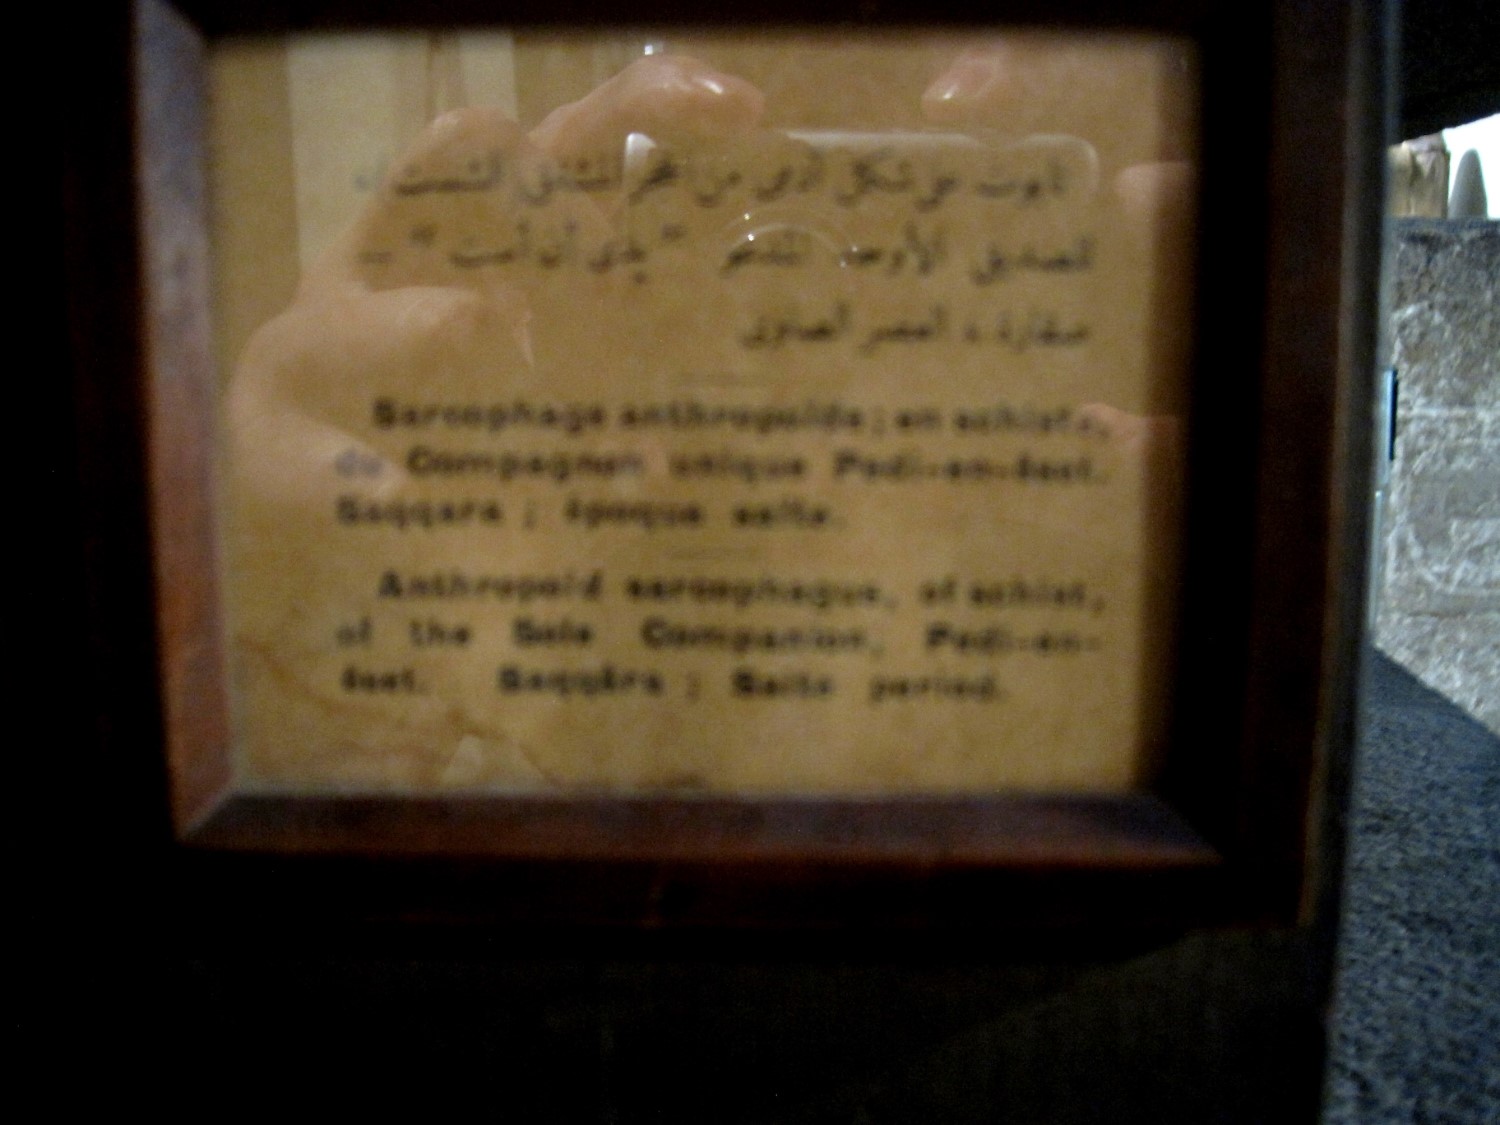 تابوت على شكل آدمى من حجر الشست
للصديق الأوحد المدعو " بدى أن أست " —
سقارة ، العصر الصاوى
Sarcophage anthropoïde ; en schiste,
du Compagnon unique Pedi-en-êset.
Saqqara ; époque saïte.
Anthropoid sarcophagus, of schist,
of the Sole Companion, Pedi-en-
êset. Saqqâra ; Saite period.